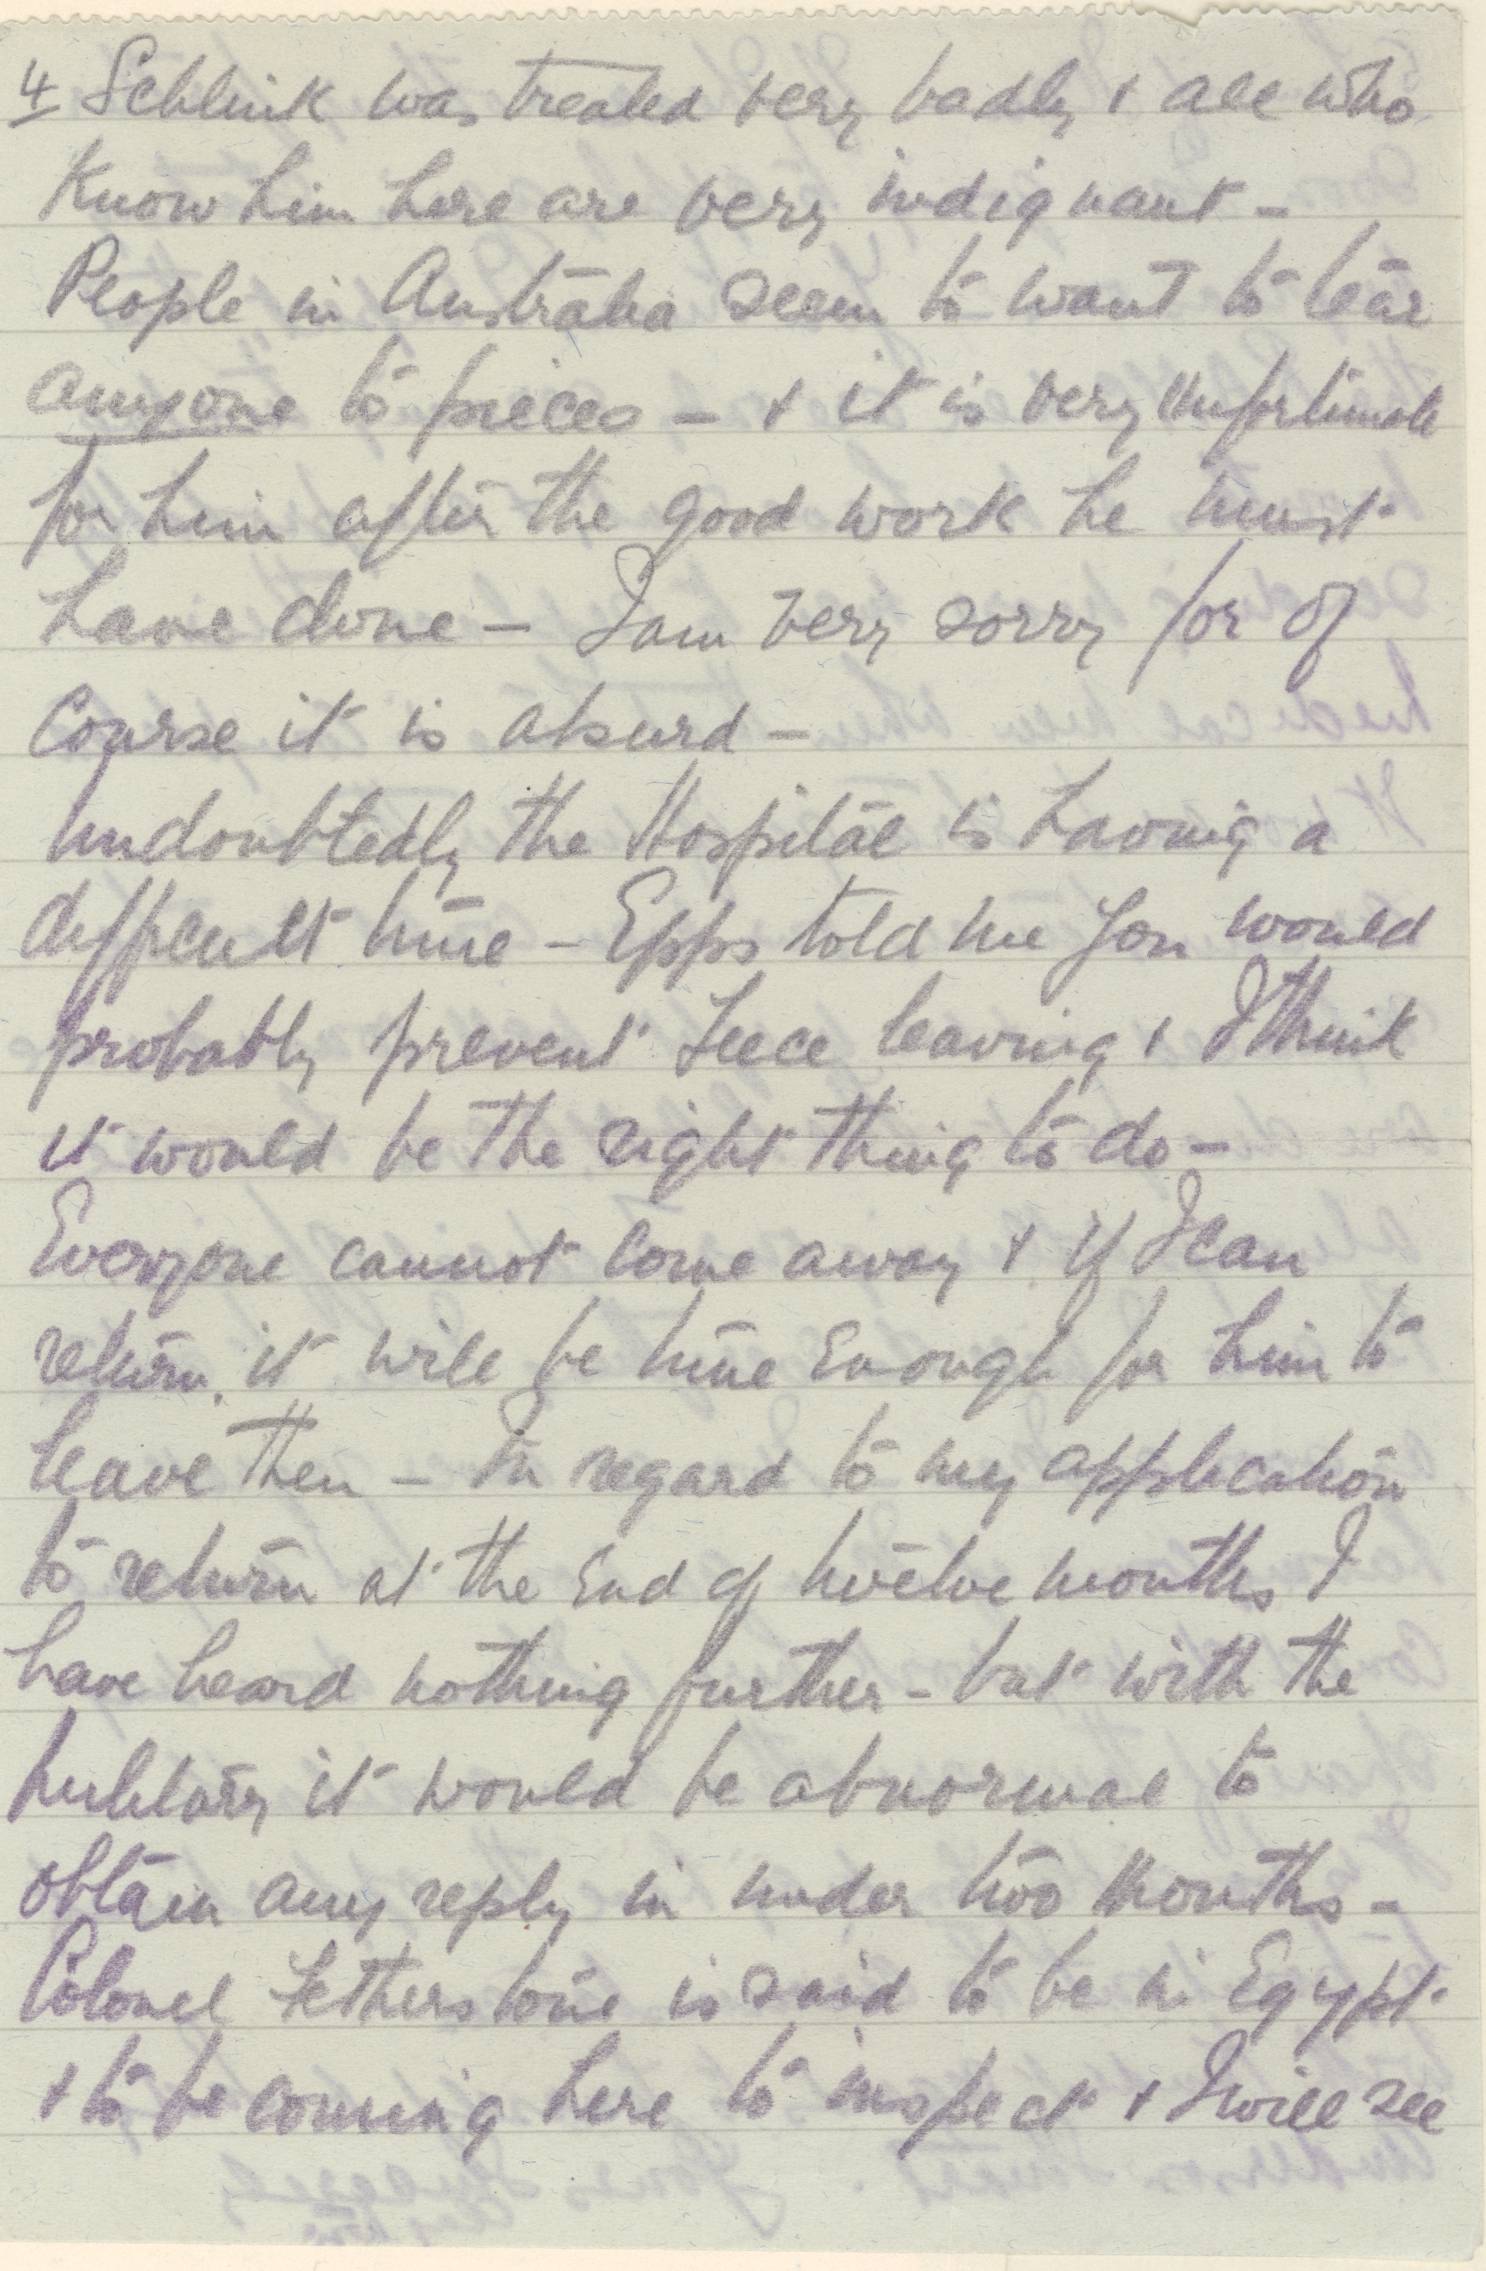 4 Schlink was treated very badly & all who
know him here are very indignant -
People in Australia seem to want to tear
anyone to pieces - & it is very unfortunate
for him after the good work he must
have done - I am very sorry for of
course it is absurd -
Undoubtedly the Hospital is having a
difficult time - Epps told me you would
probably prevent Leece leaving & I think
it would be the right thing to do -
Everyone cannot come away & if I can
return it will be time enough for him to
leave then - In regard to my application
to return at the end of twelve months I
have heard nothing further - but with the
military it would be abnormal to
obtain any reply in under two months -
Colonel Fetherstone is said to be in Egypt
& to be coming here to inspect & I will see